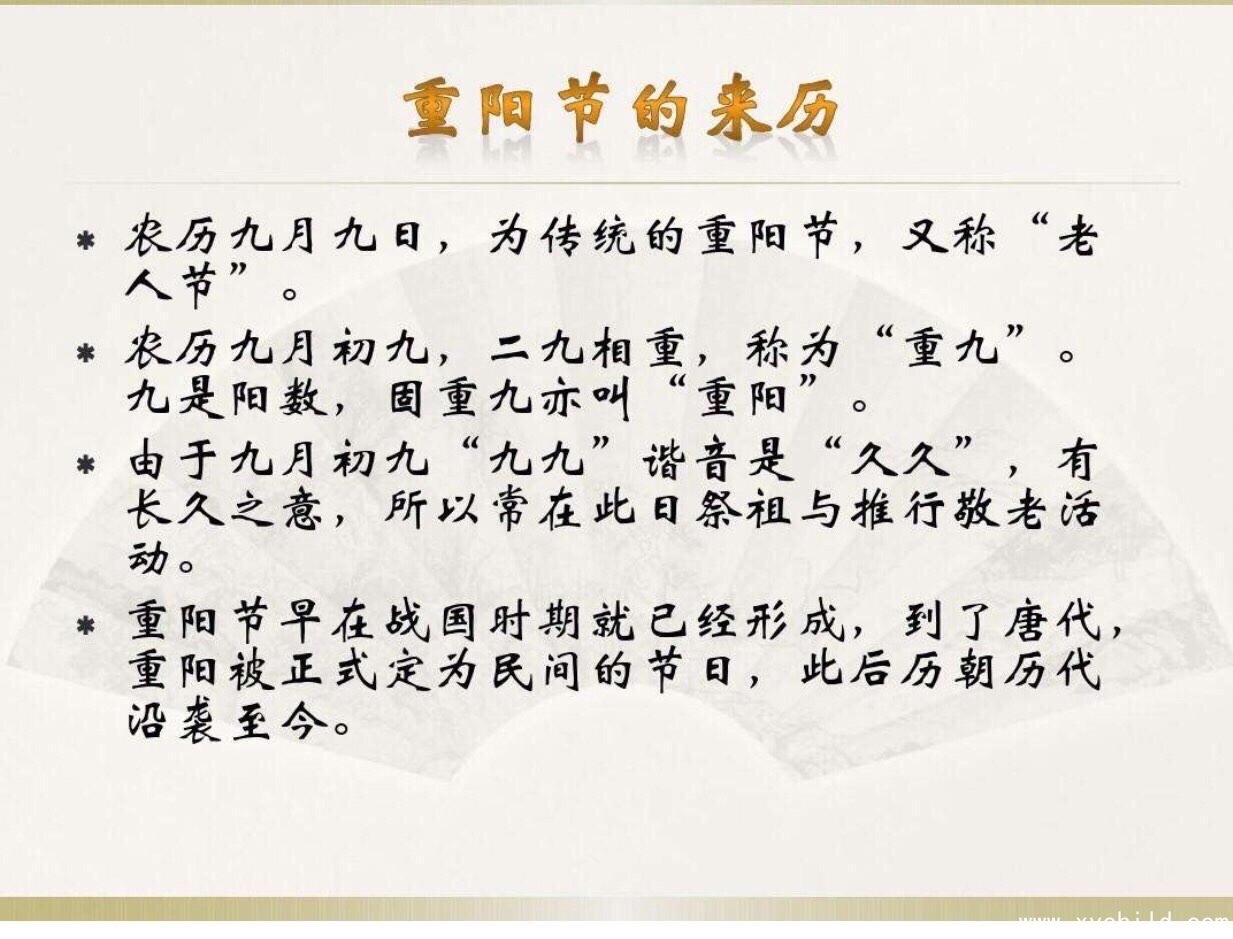 重阳节的来历
* 农历九月九日，为传统的重阳节，又称“老
人节”。
* 农历九月初九，二九相重，称为“重九”。
九是阳数，固重九亦叫“重阳”。
* 由于九月初九“九九”谐音是“久久”，有
长久之意，所以常在此日祭祖与推行敬老活
动。
* 重阳节早在战国时期就已经形成，到了唐代，
重阳被正式定为民间的节日，此后历朝历代
沿袭至今。